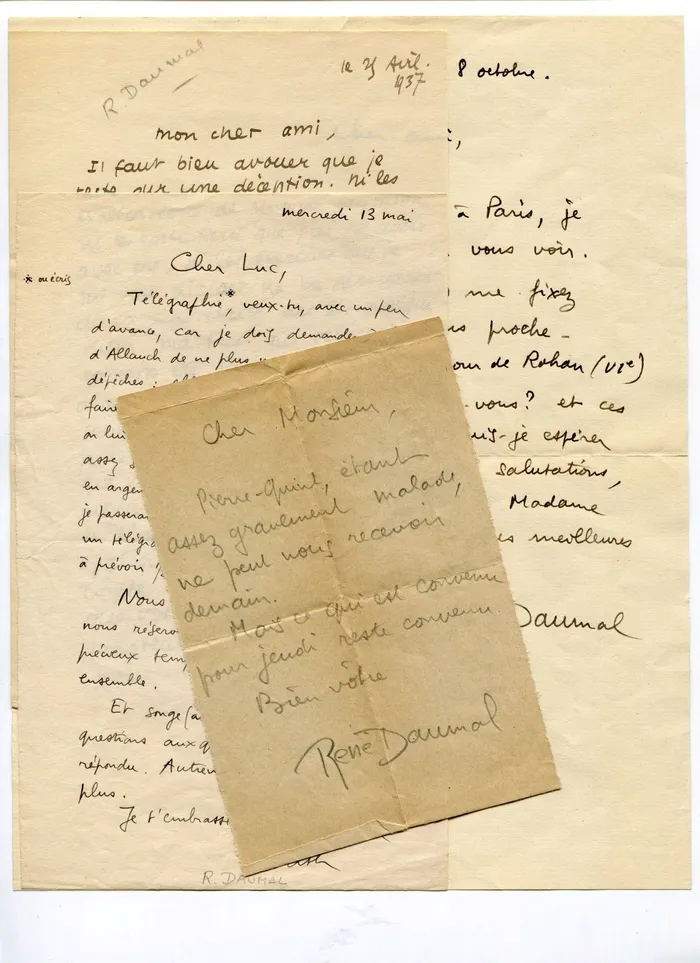 R Daumal
le 25 Avril.
1937
mon cher ami,
Il faut bien avouer que je
reste sur une déception. Ni les
mercredi 13 mai
Cher Luc,
* ou écris
Télégraphie*, veux-tu, avec un peu
d'avance, car je dois demander
d'Allauch de ne plus
dépêches :
faire
on lui
assez
en argen
je passera
un télégra
à prévoir
Nous
nous réserv
précieux tem
ensemble.
Et songe
questions auxq
répondu. Autren
plus.
Je t'embrasse
R. DAUMAL
8 octobre.
à Paris, je
vous voir.
me fixez
proche -
de Rohan (VIe)
vous? et ces
uis-je espérer
salutations,
Madame
es meilleures
Daumal
Cher Monsieur,
Pierre-Quint, étant
assez gravement malade,
ne peut nous recevoir
demain.
Mais ce qui est convenu
pour jeudi reste convenu.
Bien vôtre
René Daumal